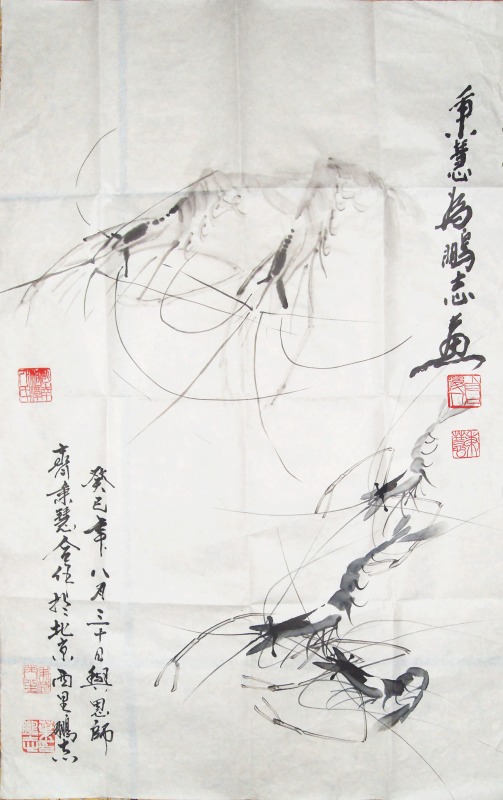 秉慧为鹏志画
癸巳年八月三十日与恩師
齊秉慧合作於北京西里鹏志